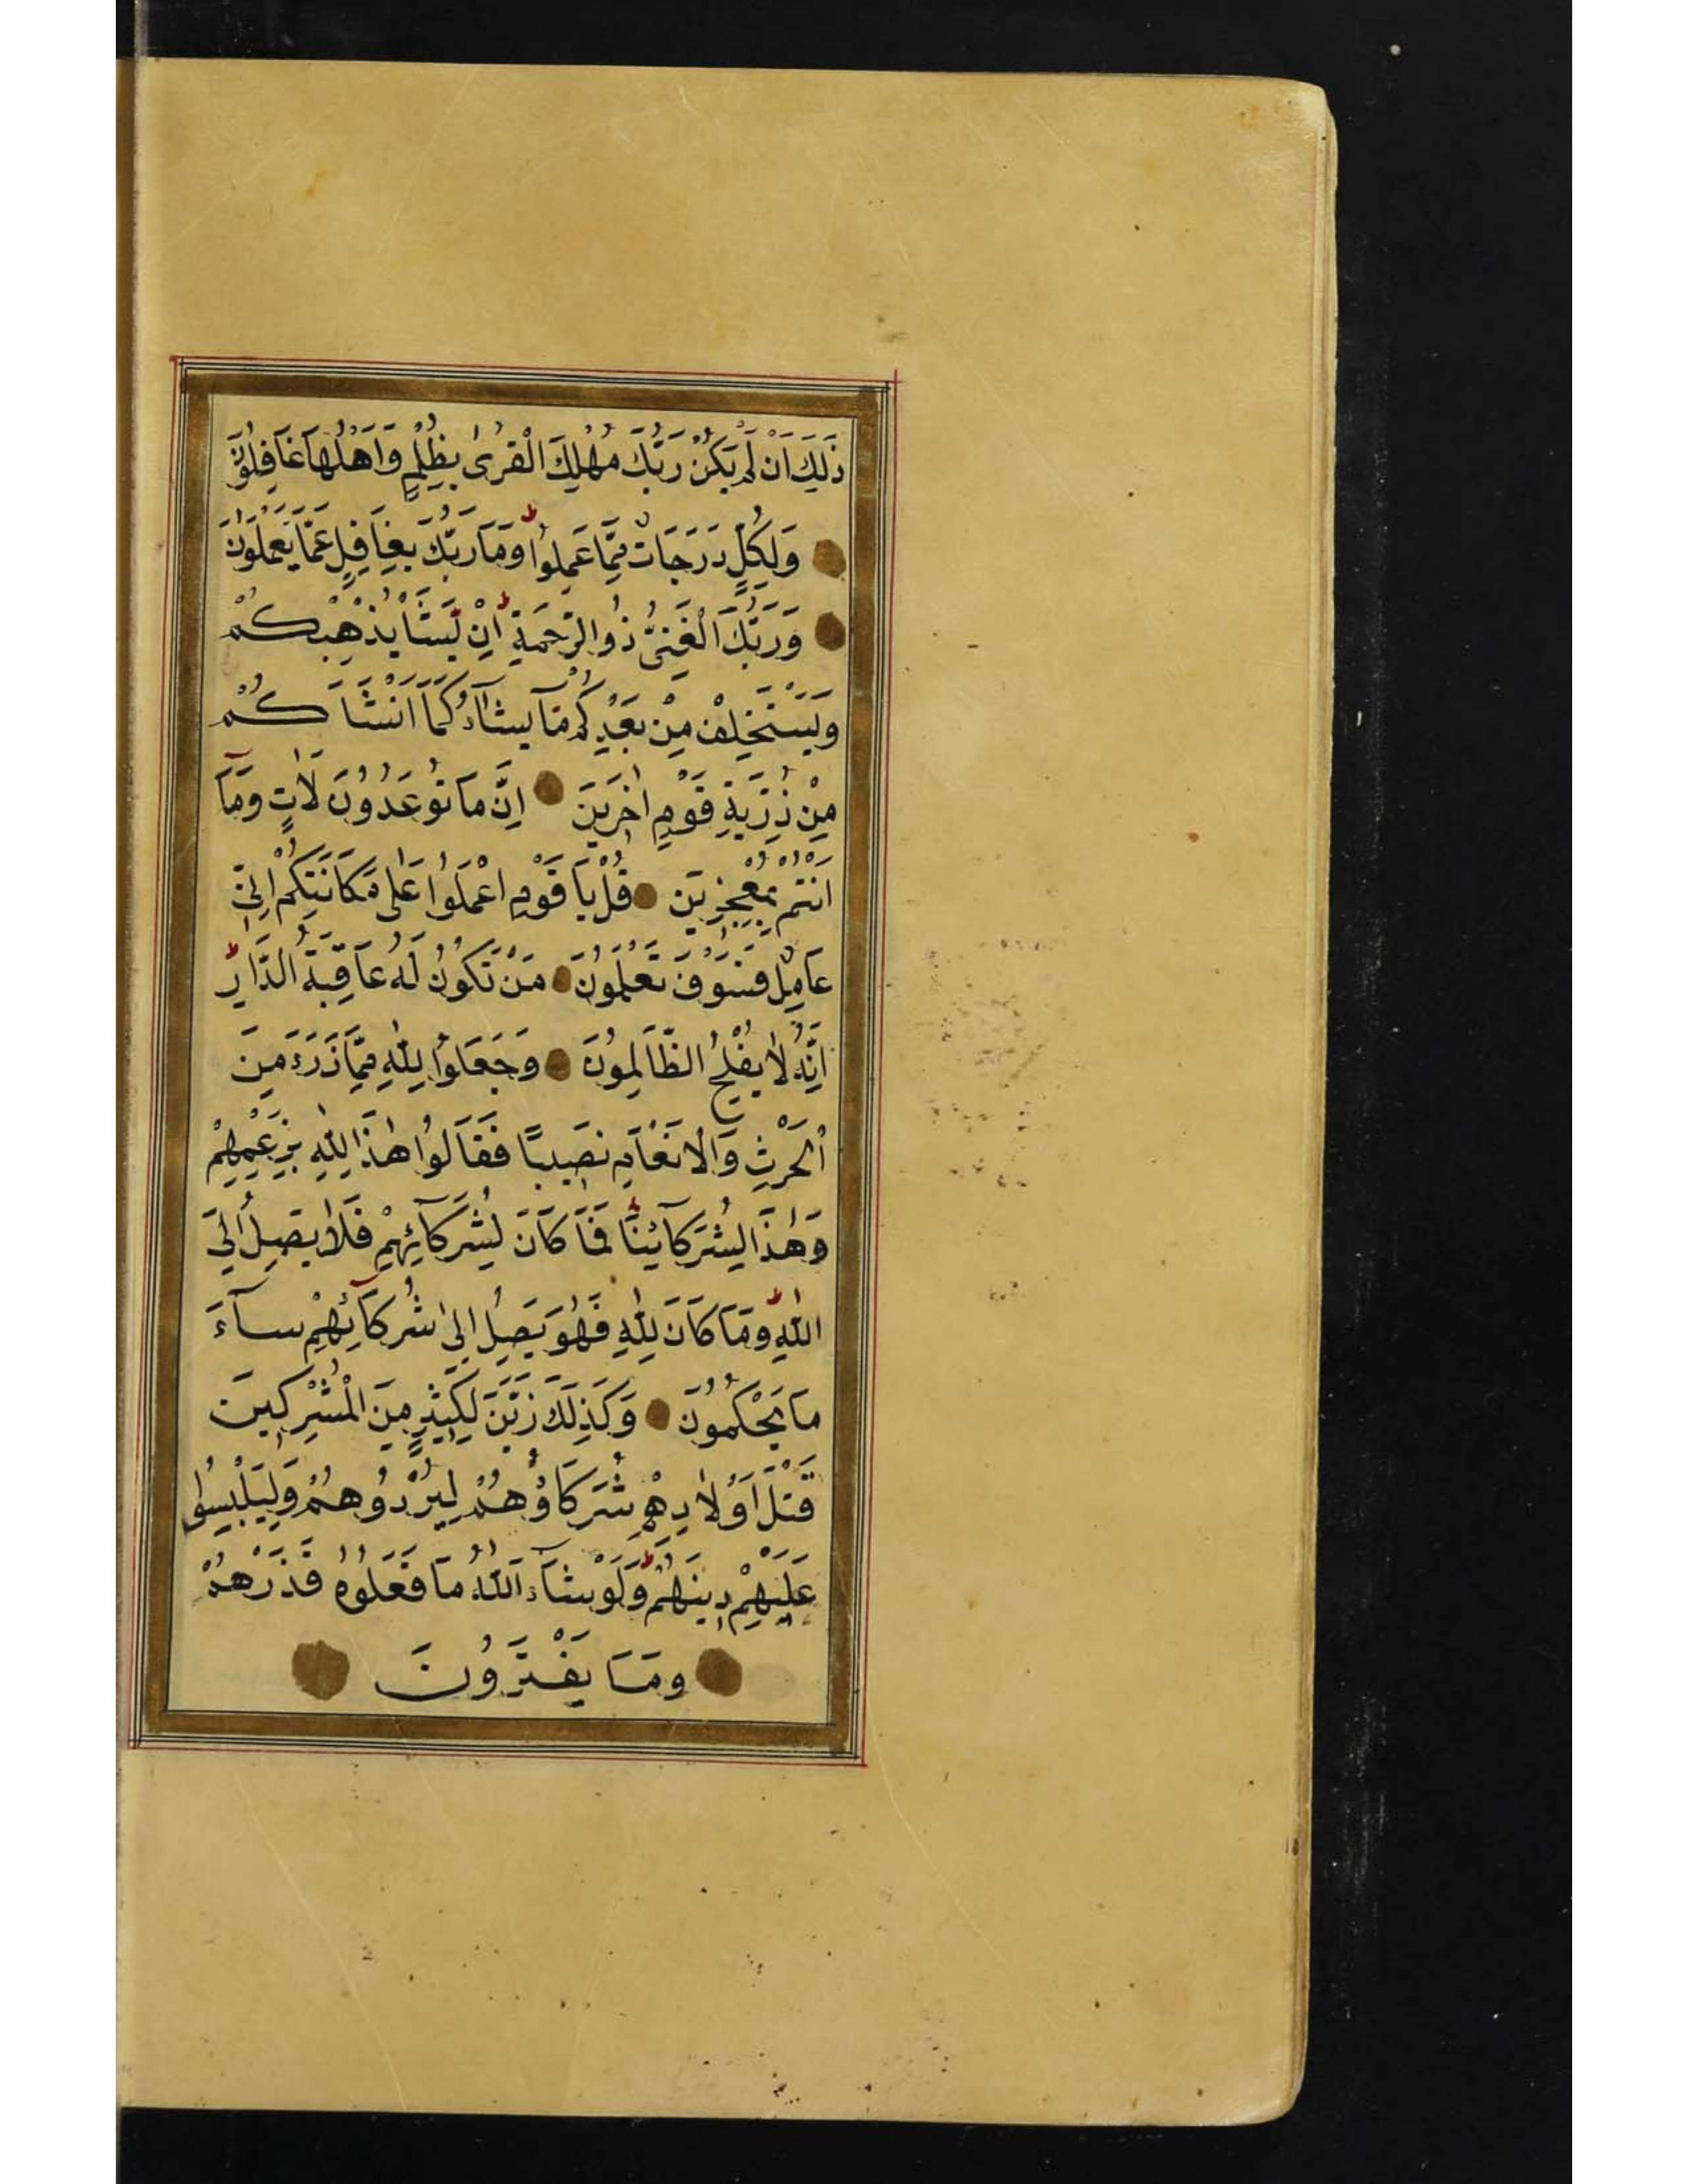 ذَلِكَ اَنْ لَمْ يَكُنْ رَبُّكَ مُهْلِكَ الْقُرٰى بِظُلْمٍ وَاَهْلُهَا غَافِلُوْنَ
وَلِكُلٍّ دَرَجَاتٌ مِمَّا عَمِلُوْا ط وَمَا رَبُّكَ بِغَافِلٍ عَمَّا يَعْمَلُوْنَ
وَرَبُّكَ الْغَنِىُّ ذُوالرَّحْمَةِ ط اِنْ يَّشَأْ يُذْهِبْكُمْ
وَيَسْتَخْلِفْ مِنْ بَعْدِكُمْ مَا يَشَآءُ كَمَآ اَنْشَاَكُمْ
مِنْ ذُرِّيَةِ قَوْمٍ اٰخَرِيْنَ اِنَّ مَا تُوْعَدُوْنَ لَاٰتٍ وَمَآ
اَنْتُمْ بِمُعْجِزِيْنَ قُلْ يَا قَوْمِ اعْمَلُوْا عَلٰى مَكَانَتِكُمْ اِنِّىْ
عَامِلٌ فَسَوْفَ تَعْلَمُوْنَ مَنْ تَكُوْنُ لَهُ عَاقِبَةُ الدَّارِ ط
اِنَّهُ لَا يُفْلِحُ الظَّالِمُوْنَ وَجَعَلُوْا لِلّٰهِ مِمَّا ذَرَءَ مِنَ
الْحَرْثِ وَالْاَنْعَامِ نَصِيْبًا فَقَالُوْا هٰذَا لِلّٰهِ بِزَعْمِهِمْ
وَهٰذَا لِشُرَكَآئِنَا ط فَمَا كَانَ لِشُرَكَآئِهِمْ فَلَا يَصِلُ اِلَى
اللّٰهِ ط وَمَا كَانَ لِلّٰهِ فَهُوَ يَصِلُ اِلٰى شُرَكَآئِهِمْ سَآءَ
مَا يَحْكُمُوْنَ وَكَذٰلِكَ زَيَّنَ لِكَثِيْرٍ مِنَ الْمُشْرِكِيْنَ
قَتْلَ اَوْلَادِهِمْ شُرَكَاؤُهُمْ لِيُرْدُوْهُمْ وَلِيَلْبِسُوْا
عَلَيْهِمْ دِيْنَهُمْ ط وَلَوْ شَآءَ اللّٰهُ مَا فَعَلُوْهُ فَذَرْهُمْ
وَمَا يَفْتَرُوْنَ